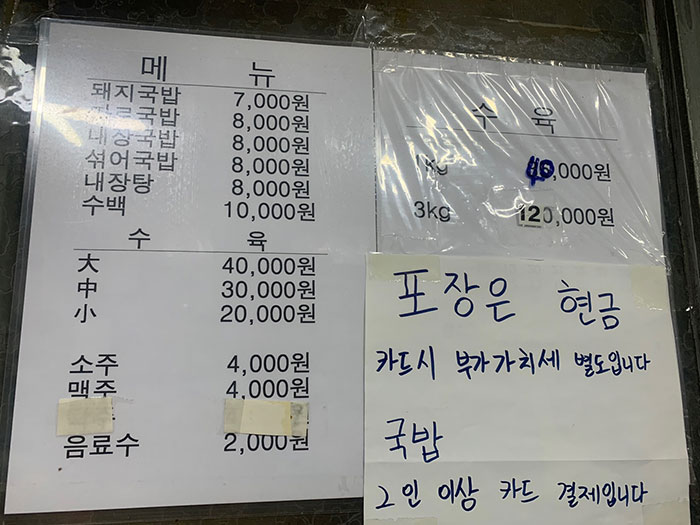 메 뉴
돼지국밥 7,000원
국밥 8,000원
내장국밥 8,000원
섞어국밥 8,000원
내장탕 8,000원
수백 10,000원
수 육
大 40,000원
中 30,000원
小 20,000원
소주 4,000원
맥주 4,000원
음료수 2,000원
수 육
1kg 40,000원
3kg 120,000원
포장은 현금
카드시 부가가치세 별도입니다
국밥
2인 이상 카드 결제입니다